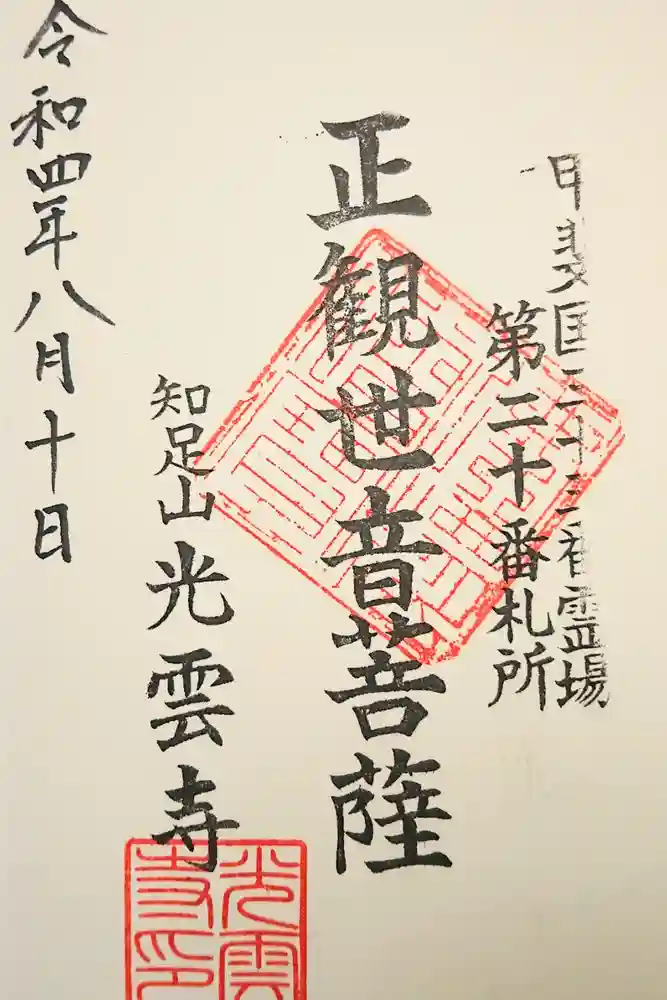 甲斐国三十三番霊場
第二十番札所
正観世音菩薩
知足山光雲寺
令和四年八月十日
光雲
寺印